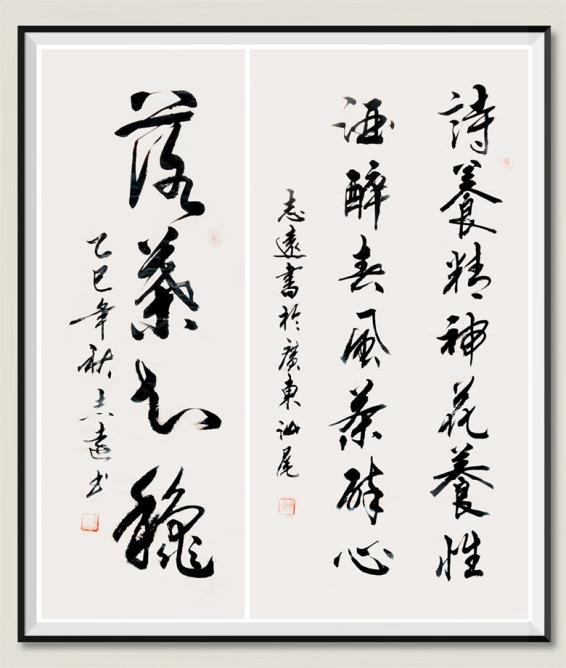 詩養精神花養性
酒醉春風茶醉心
志遠書於廣東汕尾
落葉知龝
乙巳年秋志遠书